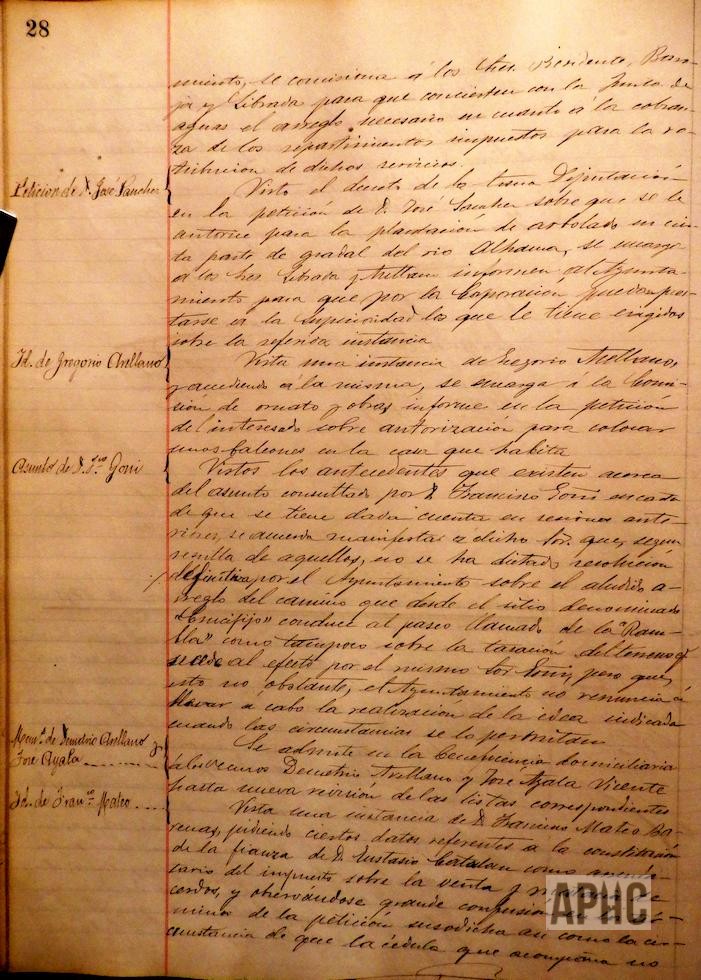 28
miento, se comisiona á los Sres. Presidente, Borra-
ja y Librada para que concierten con la Junta de
aguas el arreglo necesario en cuanto á la cobran-
za de los repartimientos impuestos para la re-
tribucion de dichos servicios.
Peticion de D. José Sanchez
Visto el decreto de la Excma Diputación
en la petición de D. José Sanchez sobre que se le
autorice para la plantación de arbolado en cier-
ta parte de gradal del rio Alhama, se encarga
a los Sres Librada y Arellano informen al Ayunta-
miento para que por la Corporación pueda pres-
tarse á la Superioridad lo que le tiene exigido
sobre la referida instancia
Id. de Gregorio Arellano
Vista una instancia de Gregorio Arellano,
y accediendo a la misma, se encarga á la Comi-
sión de ornato y obras informe en la petición
del interesado sobre autorización para colocar
unos balcones en la casa que habita
Asunto de D. Fco Goñi
Vistos los antecedentes que existen acerca
del asunto consultado por D. Francisco Goñi en carta
de que se tiene dada cuenta en sesiones ante-
riores, se acuerda manifestar a dicho Sor. que, segun
resulta de aquellos, no se ha dictado resolución
definitiva por el Ayuntamiento sobre el aludido a-
rreglo del camino que desde el sitio denominado
"Crucifijo" conduce al paseo llamado de la "Ram-
bla" como tampoco sobre la tasación del terreno q.
se cede al efecto por el mismo Sor Goñi, pero que,
esto no obstante, el Ayuntamiento no renuncia á
llevar a cabo la realización de la idea indicada
cuando las circunstancias se lo permitan
de Demetrio Arellano y
José Ayala
Se admite en la Beneficencia domiciliaria
a los vecinos Demetrio Arellano y José Ayala Vicente
hasta nueva revisión de las listas correspondientes
Id. de Franco Mateo
Vista una instancia de D. Francisco Mateo Ba-
renas, pidiendo ciertos datos referentes a la constitución
de la fianza de D. Eustasio Catalan como arren-
tario del impuesto sobre la venta y
cerdos, y observándose grande confusion
minos de la petición susodicha asi como la cir-
cunstancia de que la cédula que acompaña no
APHC